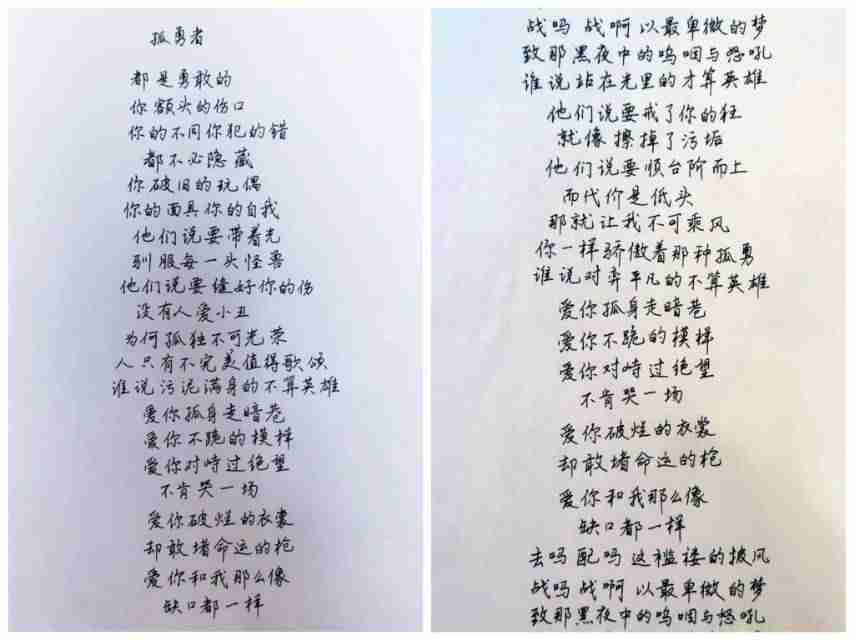 孤勇者
都是勇敢的
你额头的伤口
你的不同你犯的错
都不必隐藏
你破旧的玩偶
你的面具你的自我
他们说要带着光
驯服每一头怪兽
他们说要缝好你的伤
没有人爱小丑
为何孤独不可光荣
人只有不完美值得歌颂
谁说污泥满身的不算英雄
爱你孤身走暗巷
爱你不跪的模样
爱你对峙过绝望
不肯哭一场
爱你破烂的衣裳
却敢堵命运的枪
爱你和我那么像
缺口都一样
战吗 战啊 以最卑微的梦
致那黑夜中的呜咽与怒吼
谁说站在光里的才算英雄
他们说要戒了你的狂
就像擦掉了污垢
他们说要顺台阶而上
而代价是低头
那就让我不可乘风
你一样骄傲着那种孤勇
谁说对弈平凡的不算英雄
爱你孤身走暗巷
爱你不跪的模样
爱你对峙过绝望
不肯哭一场
爱你破烂的衣裳
却敢堵命运的枪
爱你和我那么像
缺口都一样
去吗 配吗 这褴褛的披风
战吗 战啊 以最卑微的梦
致那黑夜中的呜咽与怒吼